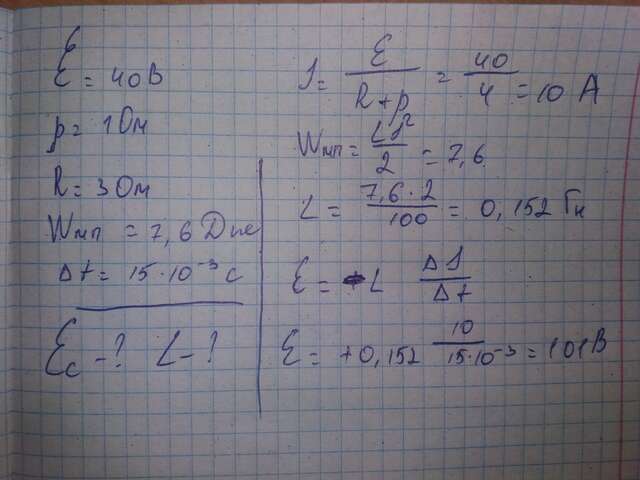 ℰ = 40 В
р = 1 Ом
R = 3 Ом
Wмп = 7,6 Дж
Δt = 15·10⁻³ с
ℰc - ? L - ?
I = ℰ/(R+р) = 40/4 = 10 А
Wмп = LI²/2 = 7,6
L = 7,6·2/100 = 0,152 Гн
ℰ = L ΔI/Δt
ℰ = +0,152 10/(15·10⁻³) = 101 В